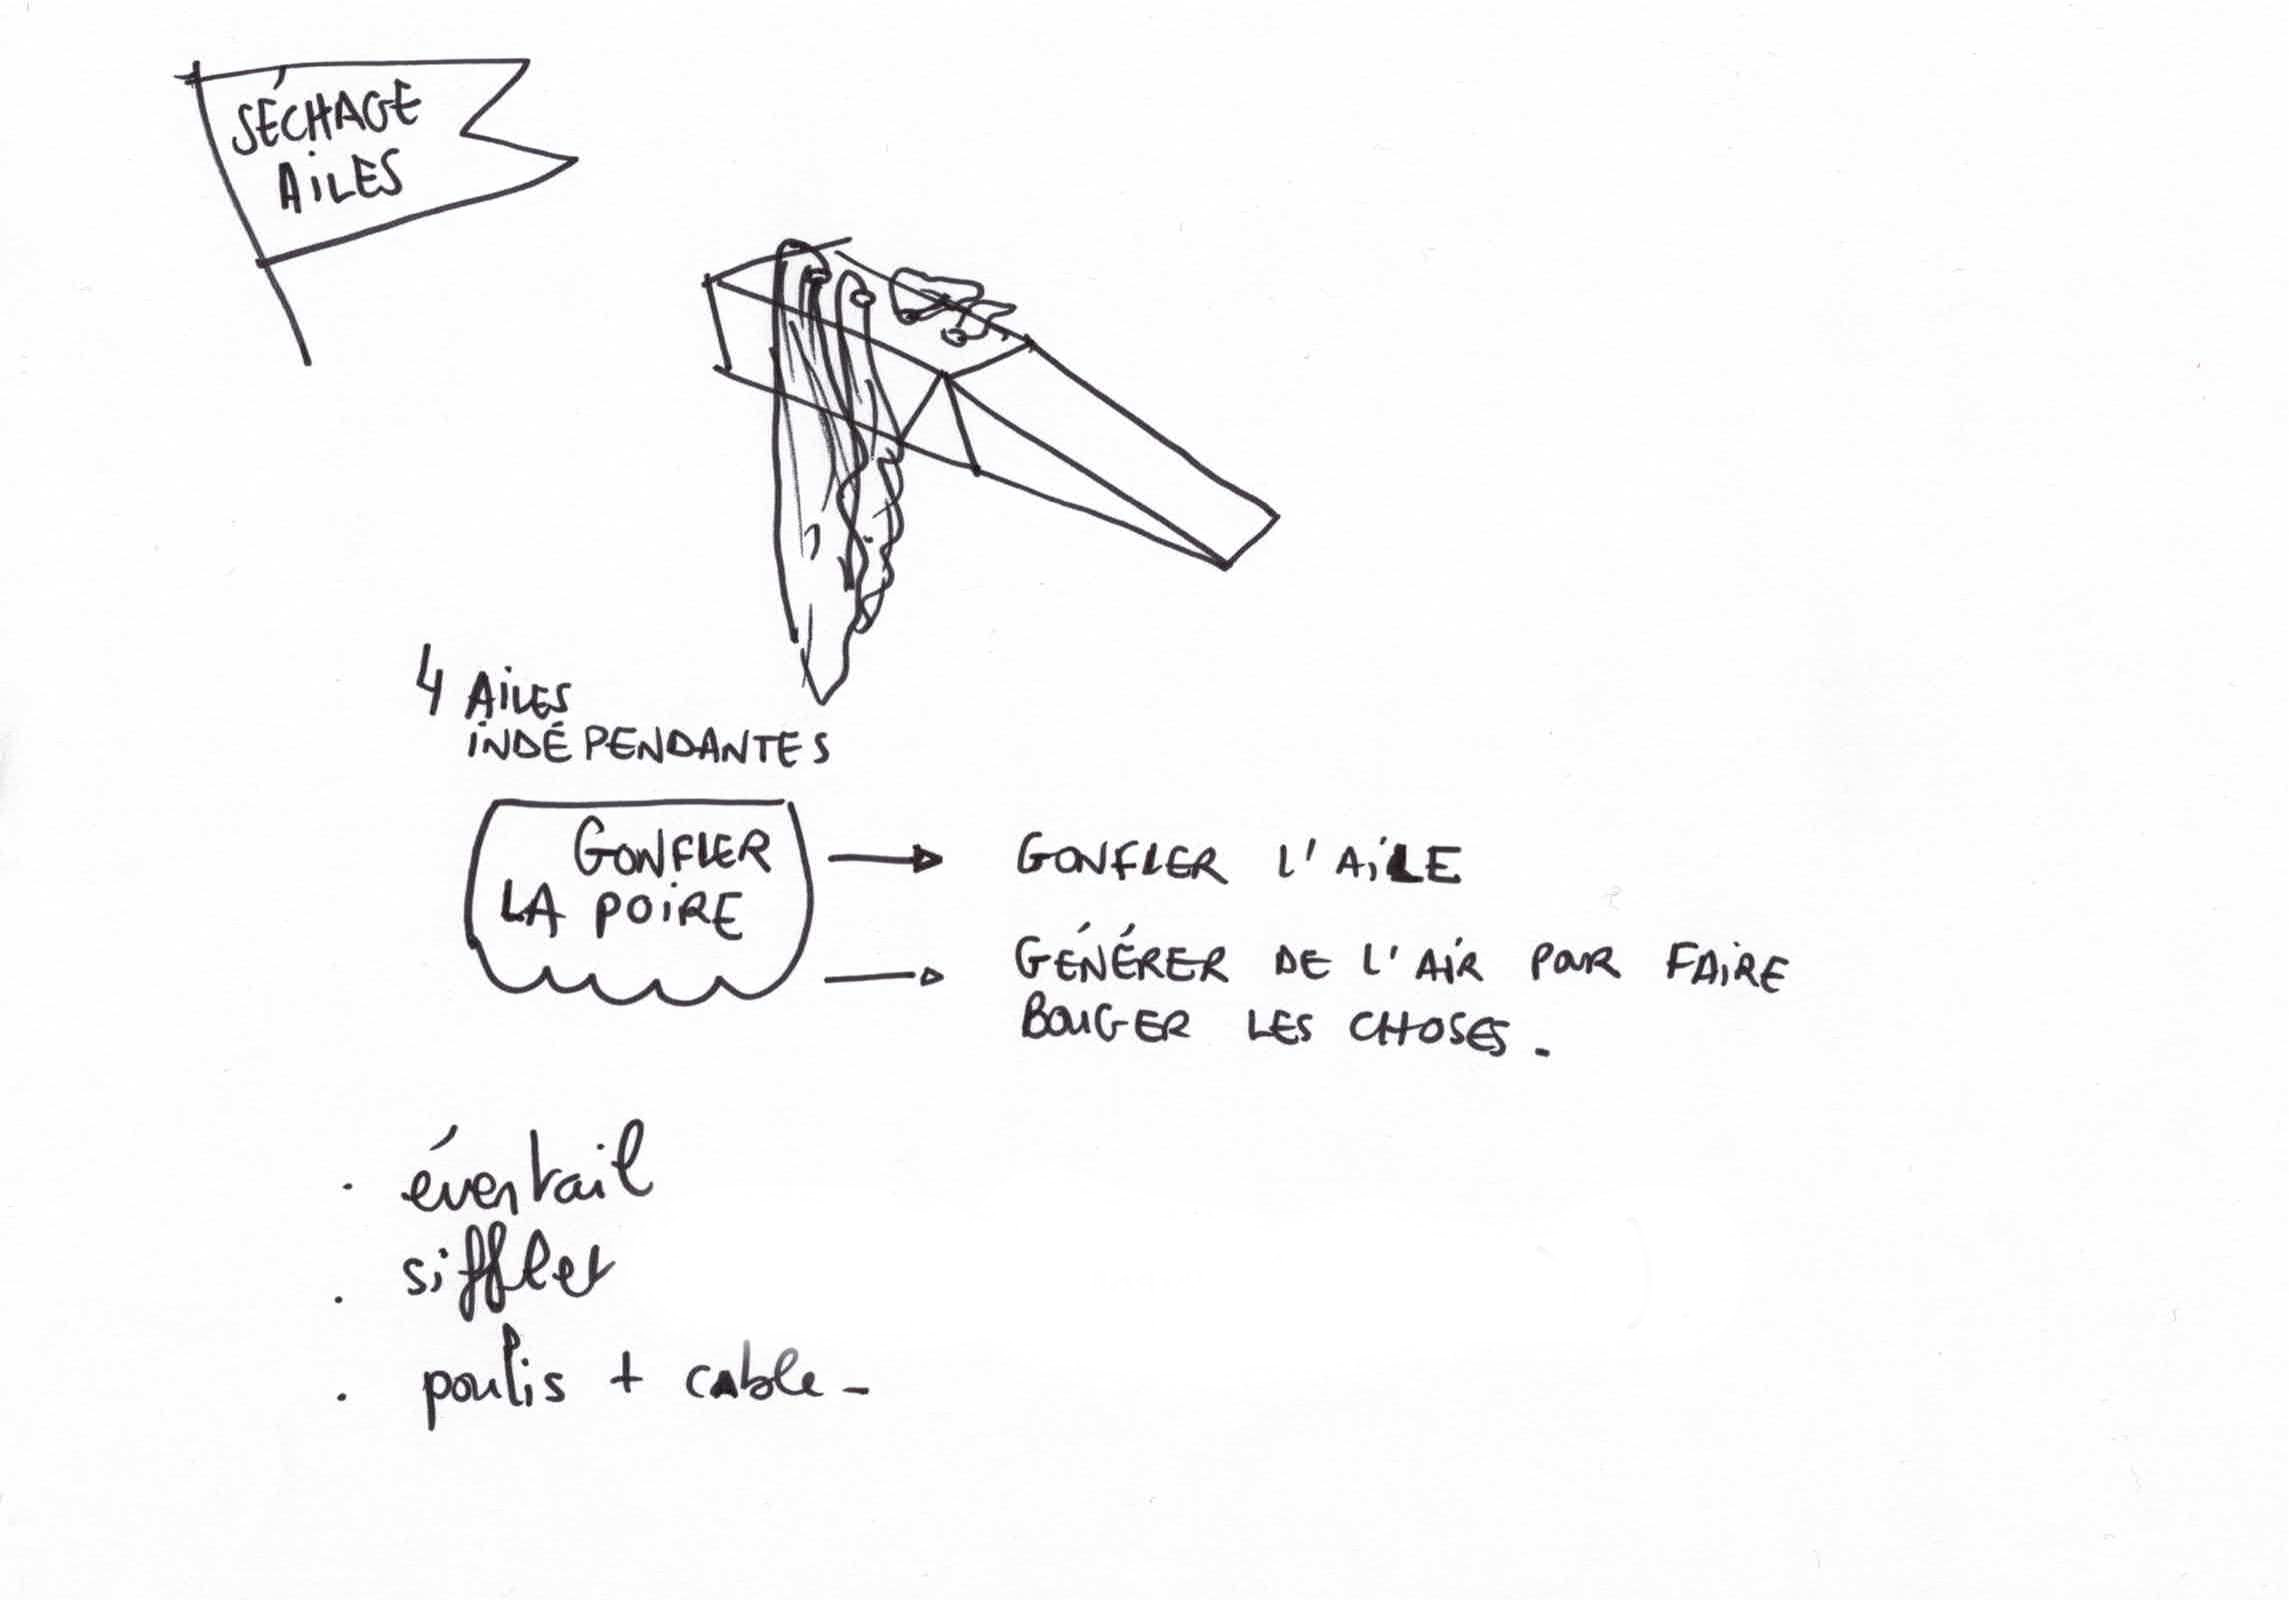 SÉCHAGE
AiLES
4 AiLES
iNDÉPENDANTES
GONFLER
LA POiRE
GONFLER L'AiLE
GÉNÉRER DE L'AiR POUR FAiRE
BOUGER LES CHOSES.
. éventail
. sifflet
. poulis + cable -